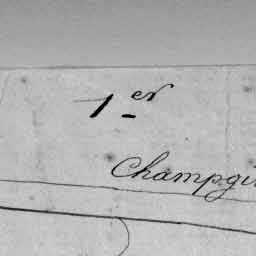 1er
Champgi